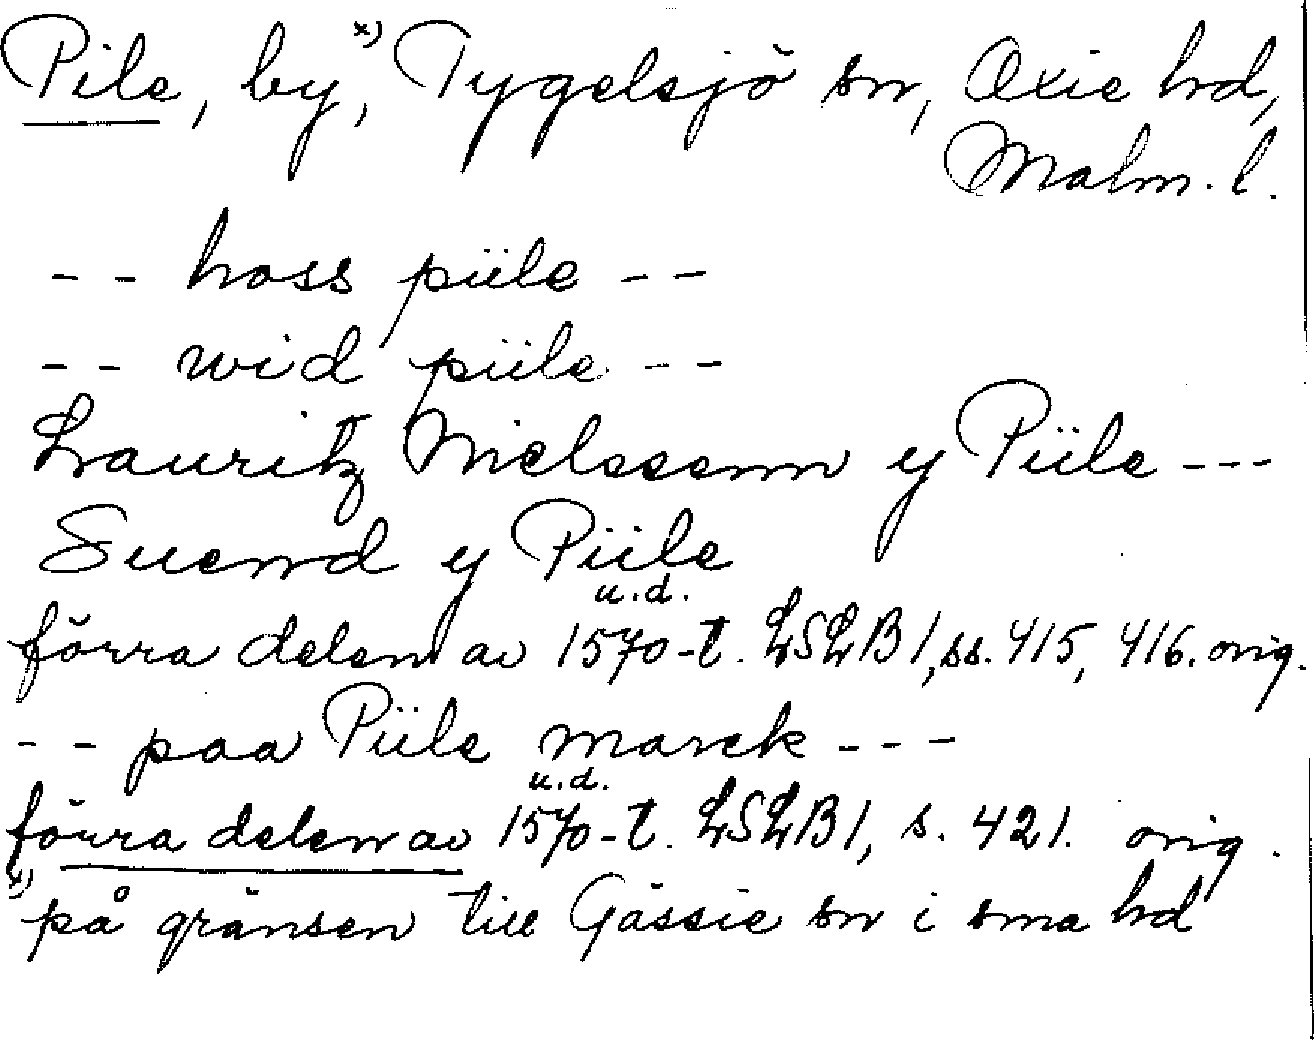 Pile, by,x) Tygelsjö sn, Oxie hd,
Malm. l.
-- hoss piile --
-- wid piile --
Lauritz Nielssenn y Piile ---
Suennd y Piile
u.d.
förra delen av 1570-t. LSLB1, ss. 415, 416. orig.
-- paa Piile marck ---
u.d.
förra delen av 1570-t. LSLB1, s. 421. orig.
x) på gränsen till Gässie sn i sma hd